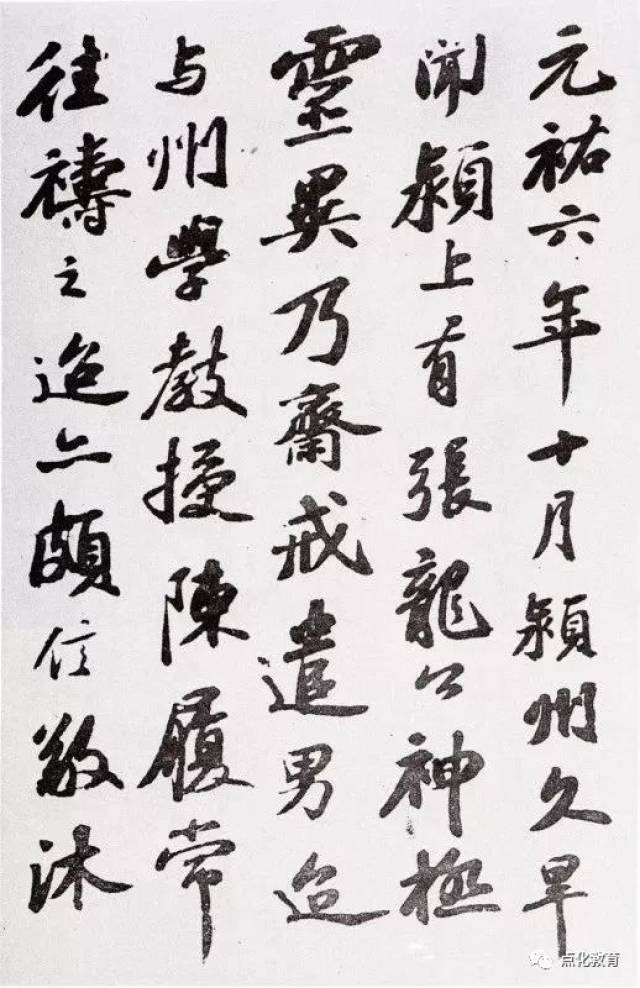 元祐六年十月潁州久旱
聞潁上有張龍公神極
靈異乃齋戒遣男迨
与州學教授陳履常
往禱之迨亦頗信敬沐
点化教育